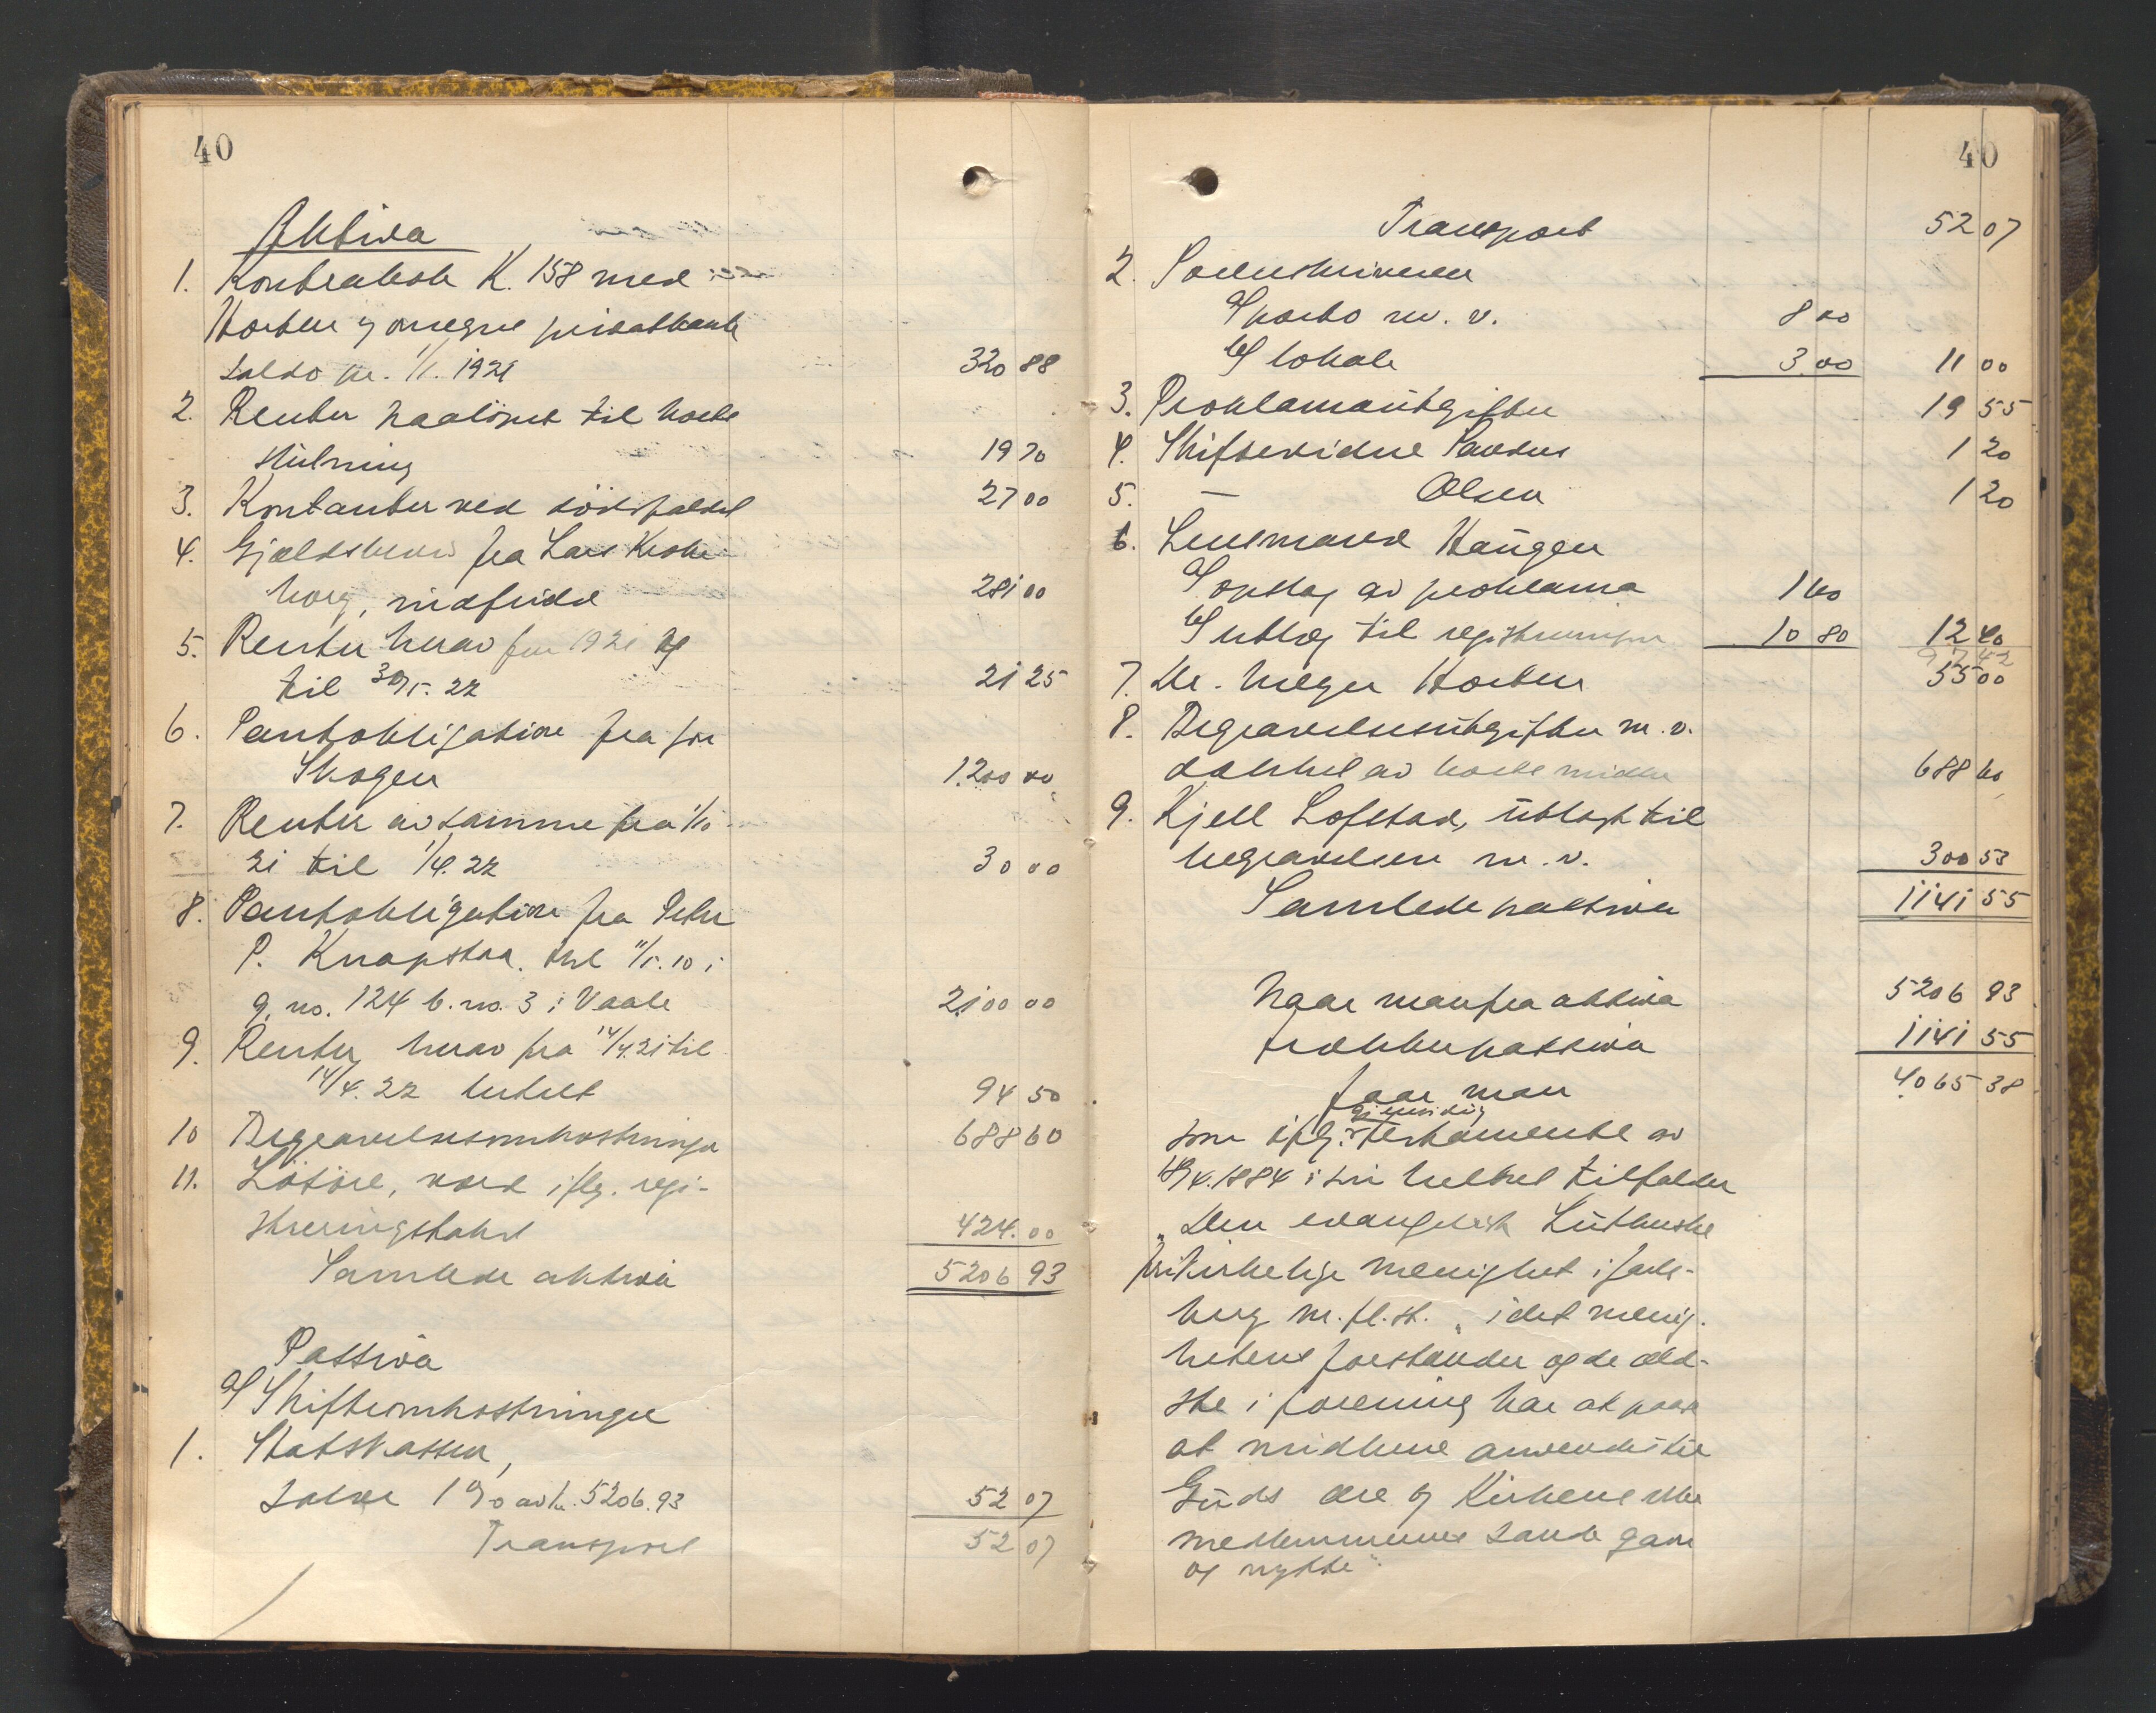 40
Aktiva
1. Kontrabok K. 158 med
Horten og omegns privatbank
saldo pr. 1/1. 1921 320 88
2. Renter paaløpet til bobe
slutning 19 70
3. Kontanter ved dödsfaldet 27 00
4. Gjældsbevis fra Lars
borg, indfridd 281 00
5. Renter herav for 1921 og
til 30/5. 22 21 25
6. Pantobligation fra
Skogen 1.200 00
7. Renter av samme fra 1/10
21 til 1/4. 22 30 00
8. Pantobligation fra Peter
P. Knapstad 11/5. 10 i
g. no. 124 b. no. 3 i Vaale 2100 00
9. Renter herav fra 14/4. 21 til
14/4. 22 betalt 94 50
10 Begravelsesomkostninger 688 60
11. Lösöre, verd iflg. regi-
streringstakst 424.00
Samlede aktiva 5206 93
Passiva
a/ Skifteomkostninger
1. Statskassen,
1% av kr. 5206.93 52 07
Transport 52 07
40
Transport 52 07
2. Sorenskriveren
a/ porto m. v. 8 00
b/ lokale 3.00 11 00
3. Proklamautgifter 19 55
4. Skiftevidne Paulsen 1 20
5. — Olsen 1 20
6. Lensmand Haugen
a/ opslag av proklama 1 60
b/ utlæg til registreringen 10 80 12 40
97 42
7. Dr. Holger Horten 55 00
8. Begravelsesutgifter m. v.
dækket av boets midler 688 60
9. Kjell Lofstad, utlagt til
begravelsen m. v. 300 53
Samlede passiva 1141 55
Naar man fra aktiva 5206 93
trækker passiva 1141 55
faar man 4065 38
gjensidig
som iflg. testamente av
18/4. 1884 i sin helhet tilfalder
"Den evangelisk Lutherske
frikirkelige menighet i Jarls-
berg m. fl. st. " idet menig-
hetens forstander og de æld-
ste i forening har at paase
at midlerne anvendes til
Guds ære og Kirkens eller
medlemmernes sande gavn
og nytte".